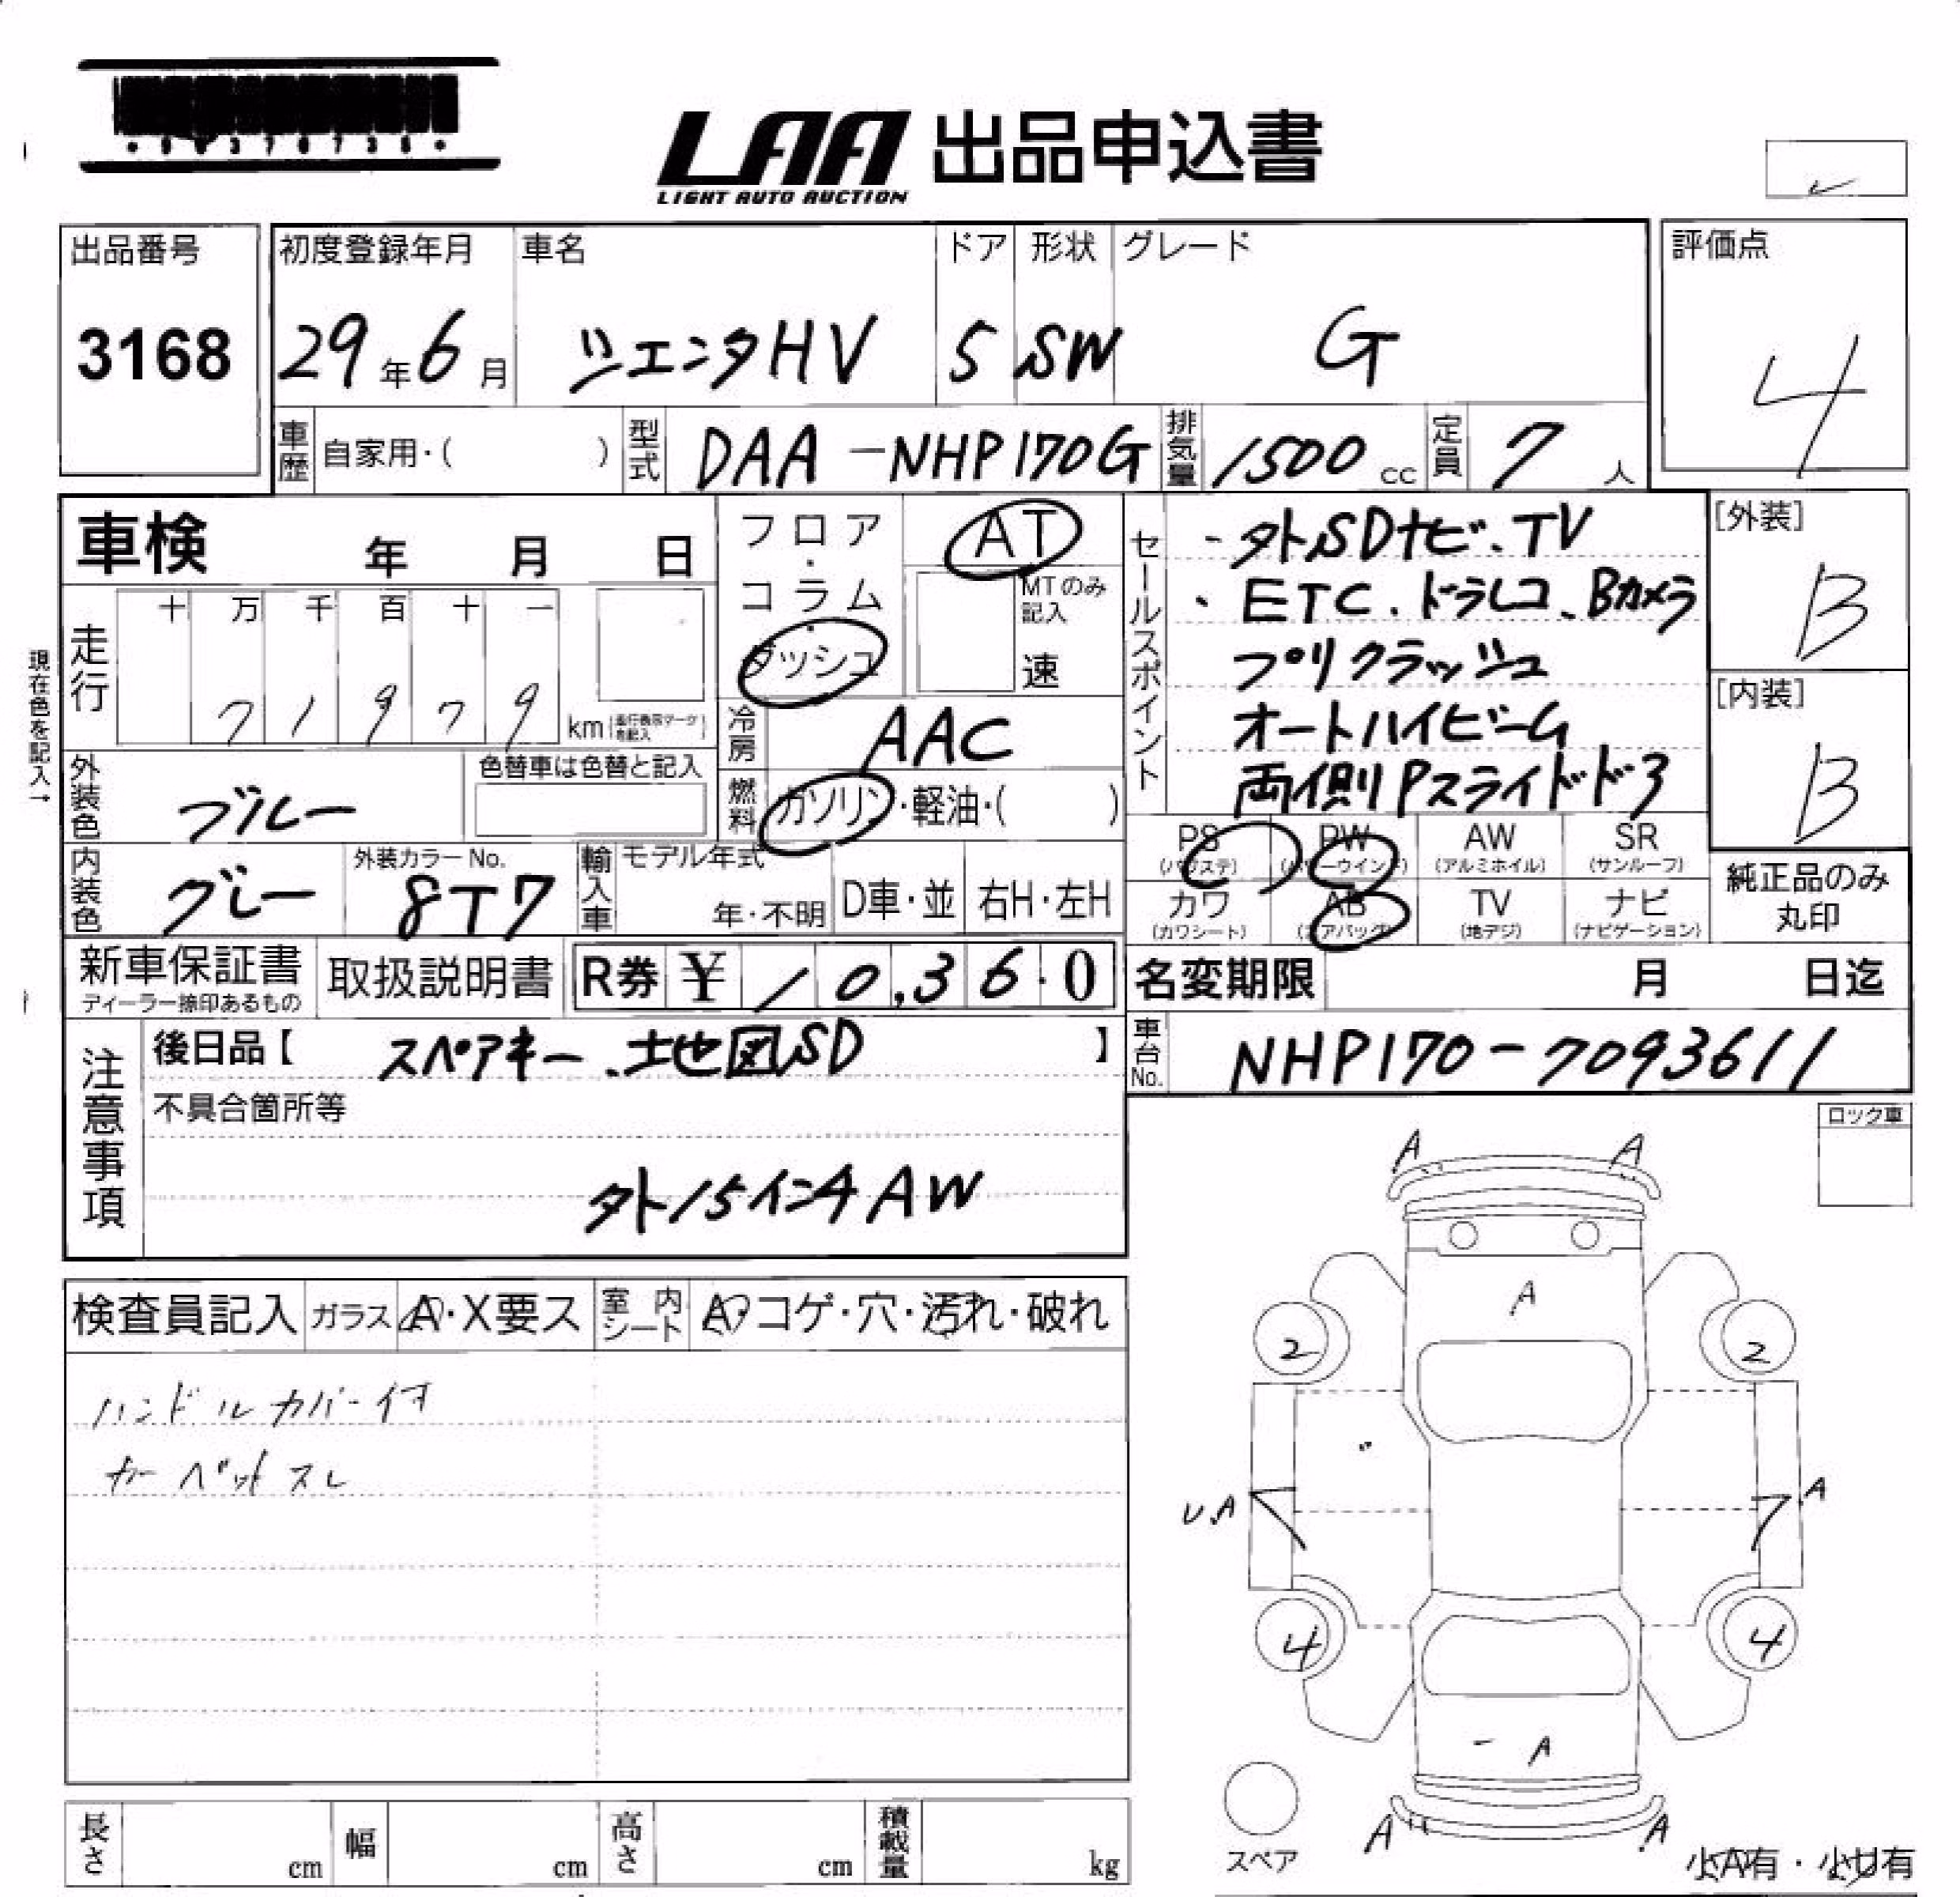 LAA 出品申込書
LIGHT AUTO AUCTION
出品番号
3168
初度登録年月
29年6月
車名
シエンタHV
ドア
5
形状
SW
グレード
G
評価点
4
車歴
自家用・( )
型式
DAA-NHP170G
排気量
1500cc
定員
7人
車検 年 月 日
フロア・コラム・ダッシュ
AT
MTのみ記入
速
セールスポイント
・外SDナビ、TV
・ETC、ドラレコ、Bカメラ
プリクラッシュ
オートハイビーム
両側Pスライドドア
[外装]
B
[内装]
B
現在色を記入→
走行
十 万 千 百 十 一
7 1 9 7 9
km
冷房
AAC
外装色
ブルー
色替車は色替と記入
燃料
ガソリン・軽油・( )
内装色
グレー
外装カラーNo.
8T7
輸入車
モデル年式
年・不明
D車・並
右H・左H
PS
(パワステ)
PW
(パワーウインド)
AW
(アルミホイル)
SR
(サンルーフ)
カワ
(カワシート)
AB
(エアバッグ)
TV
(地デジ)
ナビ
(ナビゲーション)
純正品のみ
丸印
新車保証書
ディーラー捺印あるもの
取扱説明書
R券 ¥ 10,360
名変期限 月 日迄
注意事項
後日品【 スペアキー、地図SD 】
車台No.
NHP170-7093611
不具合箇所等
外15インチAW
ロック車
検査員記入
ガラス
A・X要ス
室内シート
A コゲ・穴・汚れ・破れ
ハンドルカバー付
カーペットスレ
A A
A
2 2
U.A A
4 4
A
A A
スペア
小A有・小U有
長さ cm
幅 cm
高さ cm
積載量 kg